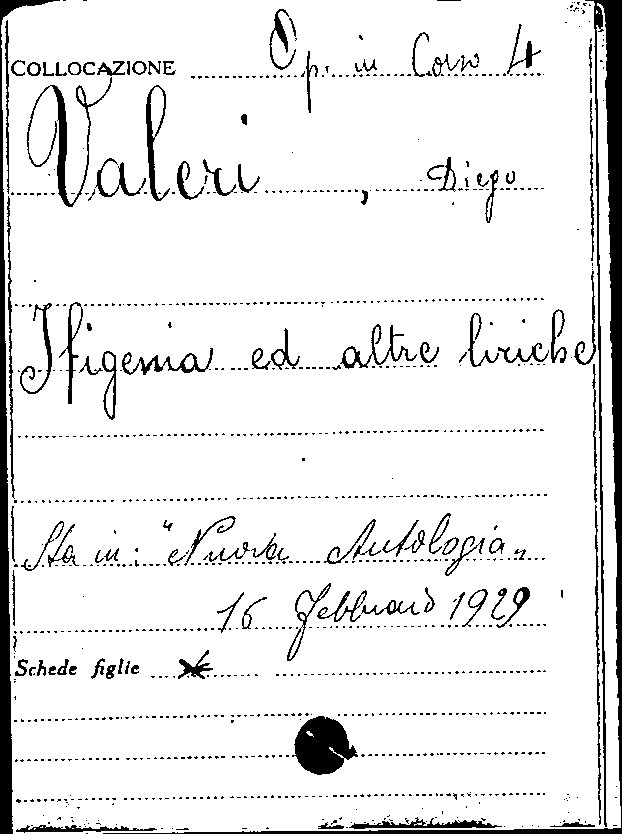 COLLOCAZIONE Op. in Corso 4
Valeri, Diego
Ifigenia ed altre liriche
Sta in: "Nuova Antologia„
16 Febbraio 1929
Schede figlie